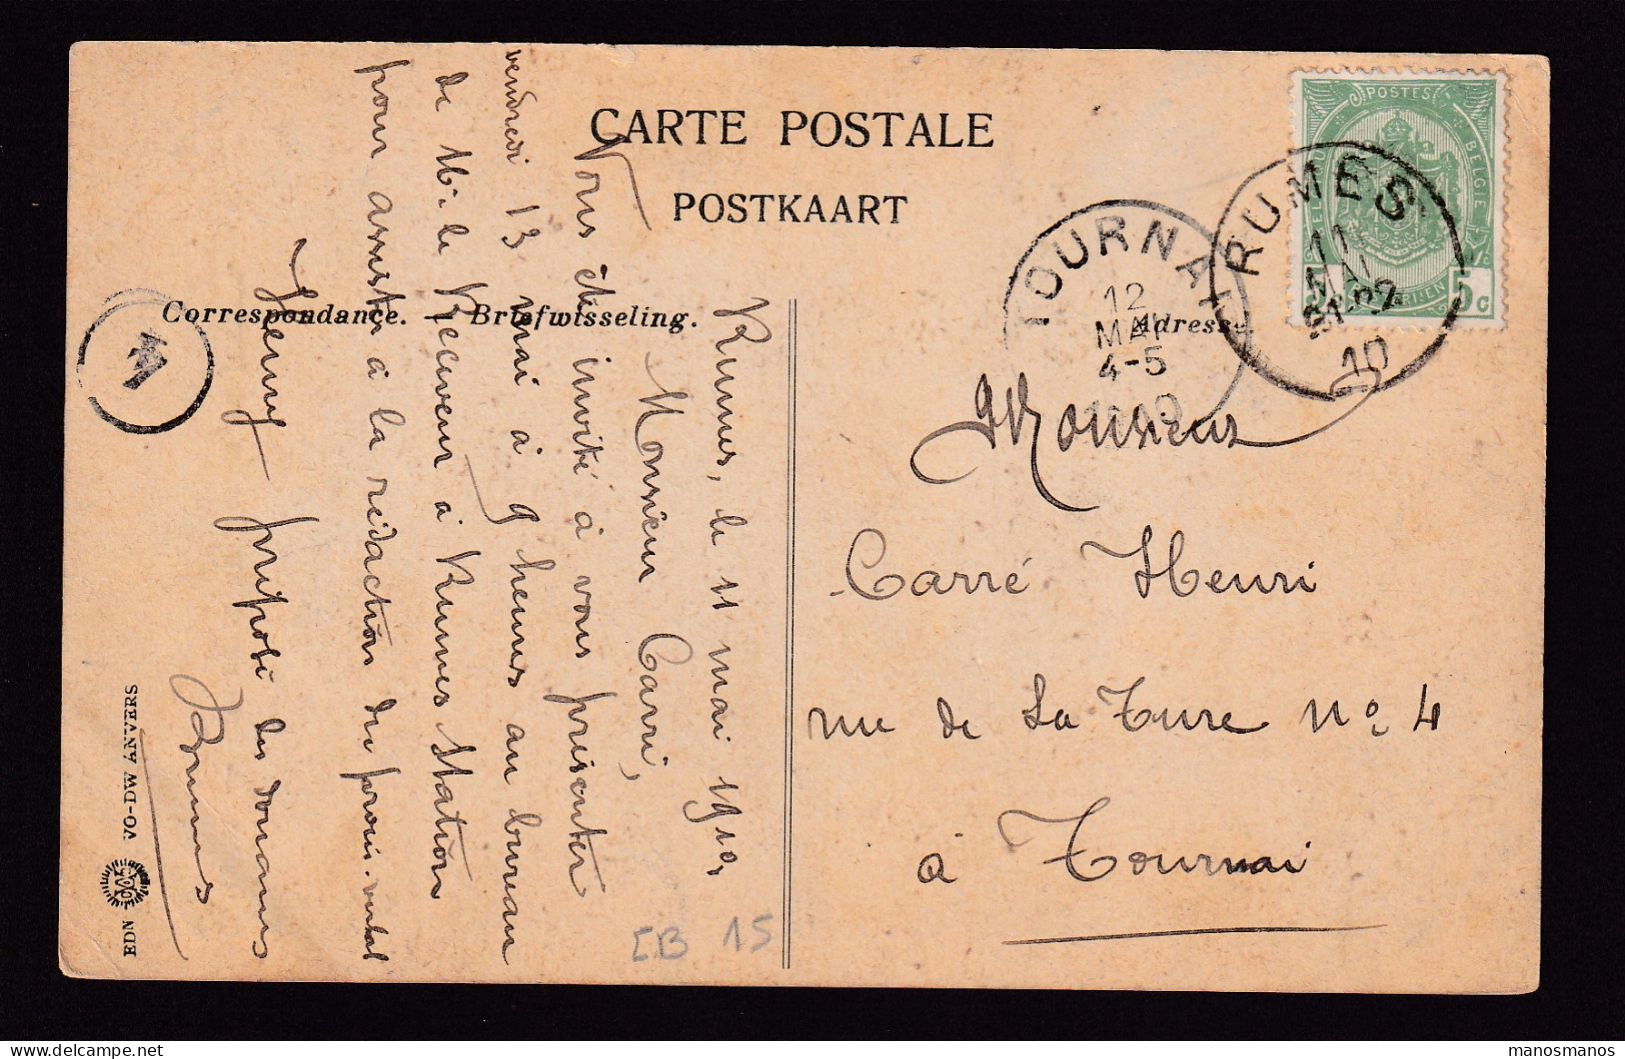 CARTE POSTALE
POSTKAART
Correspondance. Briefwisseling.
Adresse
POSTES
BELGIE
5 c
RUMES
11
MAI
10
TOURNAI
12
MAI
4-5
1910
4
Rumes, le 11 mai 1910,
Monsieur Carré,
Vous êtes invité à vous présenter
vendredi 13 mai à 9 heures au bureau
de Mr le Receveur à Rumes Station
pour assister à la rédaction du procès-verbal
préposé des douanes
Monsieur
Carré Henri
rue de La Ture No 4
à Tournai
EB 15
EDN VO-DW ANVERS
manosmanos